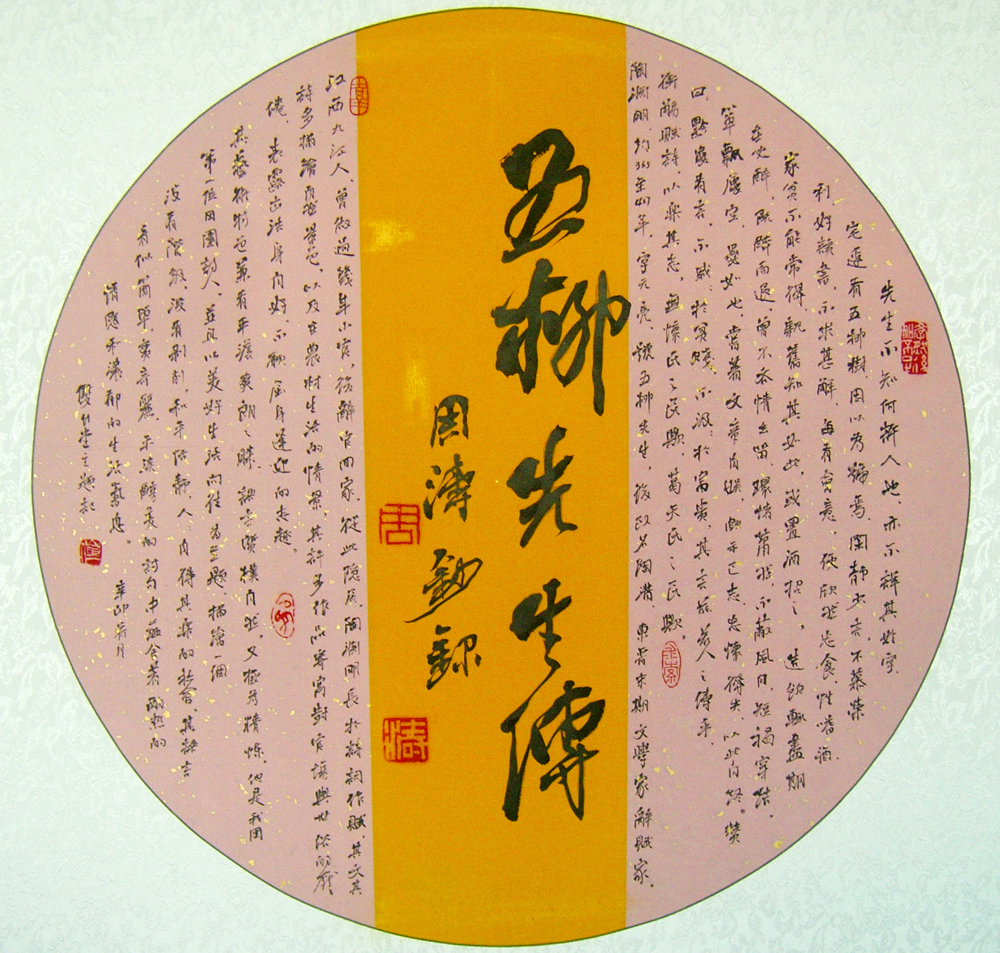 先生不知何許人也、亦不詳其姓字
宅邊有五柳樹因以為號焉、闲静少言不慕榮
利好讀書、不求甚解、每有會意、便欣然忘食性嗜酒
家贫不能常得、親舊知其如此、或置酒招之、造飲輒盡期
在必醉、既醉而退、曾不吝情去留、環堵蕭然、不蔽風日、短褐穿結、
箪瓢屡空、晏如也、常著文章自娱、頗示己志、忘懷得失、以此自终。赞
曰、黔婁有言、不戚々於贫贱、不汲々於富贵、其言兹若人之儔乎、
衔觞赋詩、以樂其志、無懷氏之民歟、葛天氏之民歟。
陶淵明、约365至427年、字元亮、號五柳先生、後改名陶潜、東晋末期文學家辭赋家、
五柳先生傳
周濤録
周
濤
江西九江人、曾做過幾年小官、後辭官回家、從此隐居、陶淵明長於詩詞作赋、其文其
詩多描繪自然景色、以及在農村生活的情景、其許多作品寄寓對官場與世俗的厭
倦、表露出潔身自好不願屈身逢迎的志趣。
其藝術特色兼有平淡爽朗之勝、語言质樸自然、又極為精炼、他是我国
第一位田園詩人、並且以美好生活向往為主题、描繪一個
没有階级、没有剥削、和平恬静人、自得其樂的社會、其語言
看似简單、实奇麗、平淡醇美的詩句中蕴含着熾热的
情感和濃郁的生活氣息。
辛卯 月